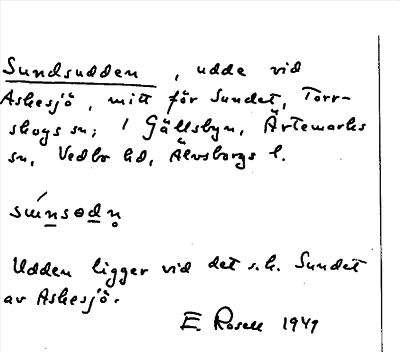 Sundsudden, udde vid
Askesjö, mitt för Sundet, Torr-
skogs sn; i Gällsbyn, Ärtemarks
sn, Vedbo hd, Älvsborgs l.
súnsɵdn̥
Udden ligger vid det s.k. Sundet
av Askesjö.
E. Rosell 1941